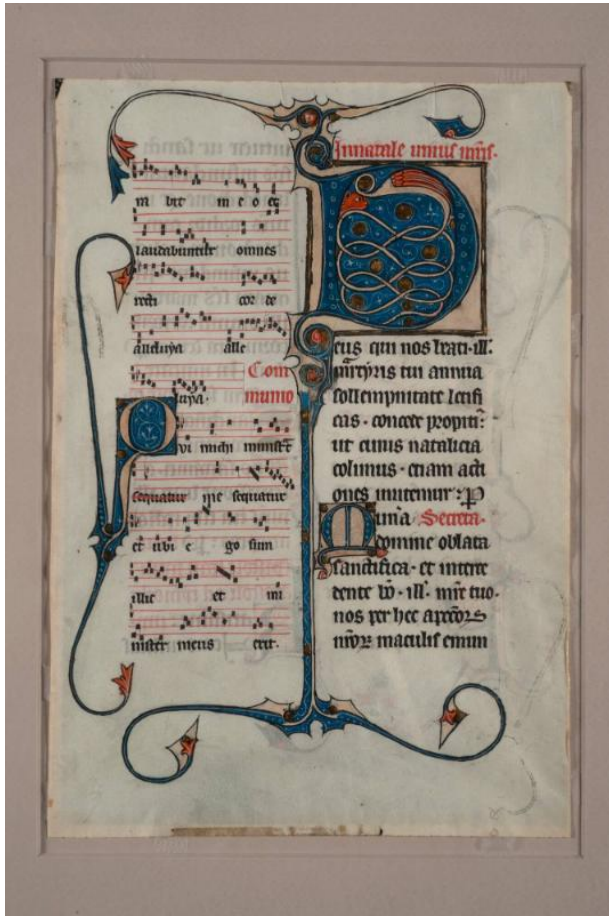 ra bit in e o et
laudabuntur omnes
recti cor de
alleluya alle
luya. Com
munio
Qvi michi ministrat
sequatur me sequatur
et ubi e go sum
illic et mi
nister meus erit.
In natale unius mris.
Deus qui nos beati. ill.
martyris tui annua
sollempnitate letifi
cas. concede propiti
ut cuius natalicia
colimus. etiam acti
ones imitemur: P
Munera Secreta.
domine oblata
sanctifica. et interce
dente bo. ill. mre tuo.
nos per hec a pccorz
nrorz maculis emun